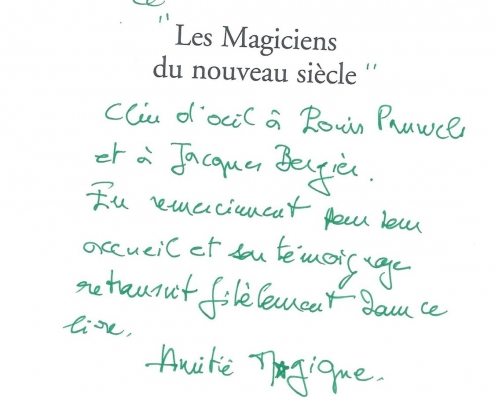 "Les Magiciens
du nouveau siècle"
Clin d'oeil à Louis Pauwels
et à Jacques Bergier.
En remerciement pour
accueil et son témoignage
retransmit fidèlement dans ce
livre.
Amitié Magique.